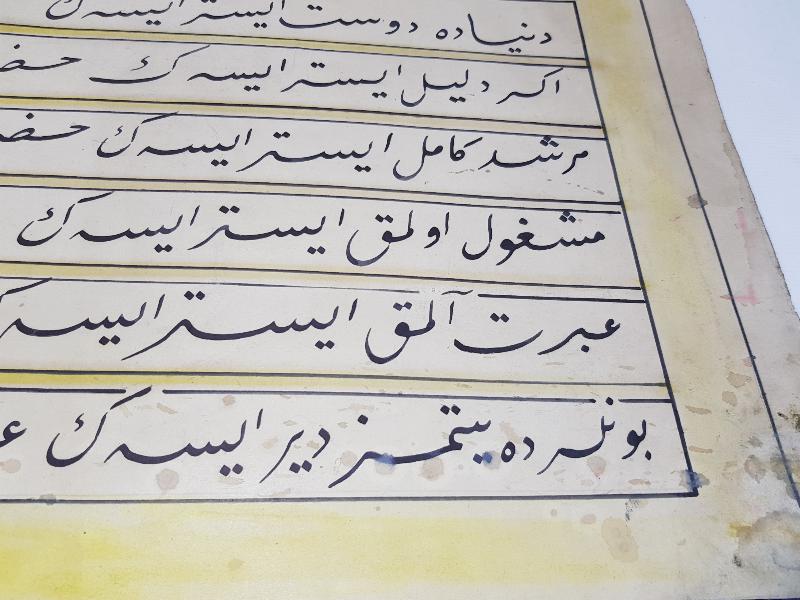 دنیاده دوست ایستر ایسه ك
اکر دلیل ایستر ایسه ك
مرشد کامل ایستر ایسه ك
مشغول اولمق ایستر ایسه ك
عبرت آلمق ایستر ایسه
بونلر ده یتمز دیر ایسه ك